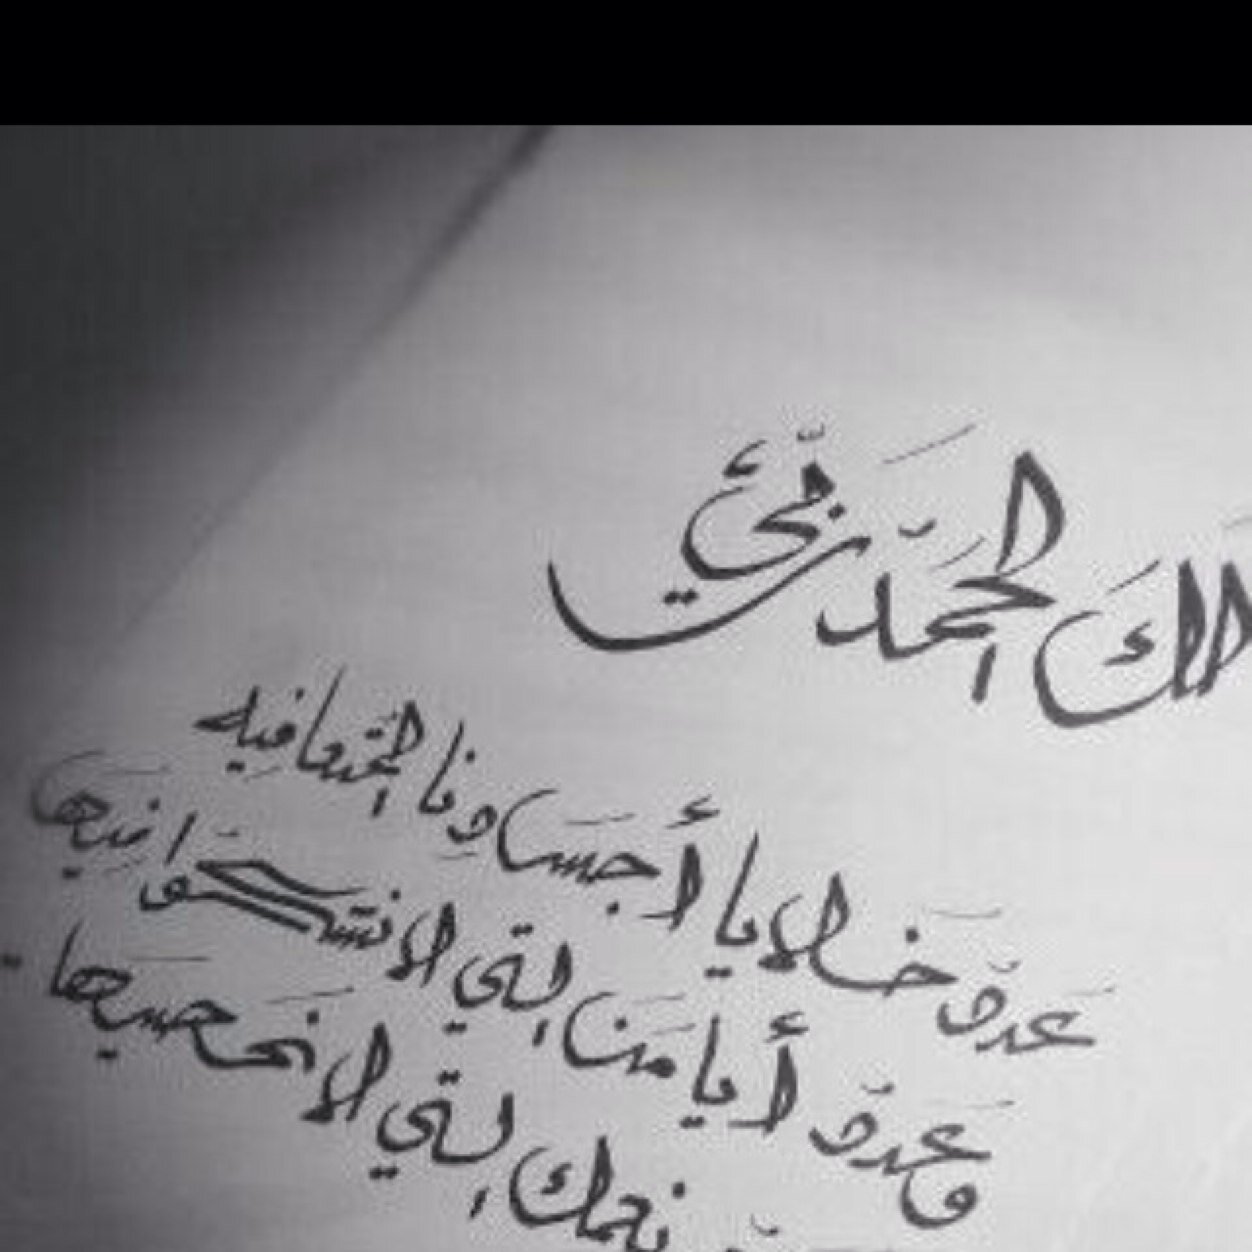 لكَ الحَمدُ ربّيْ
عَددّ خَلايا أجسَادِنا المُتعافيه
وعَددّ أيامَنا التي لا نَشكوَا فيَها
نعمك التي لا نَحصيَها